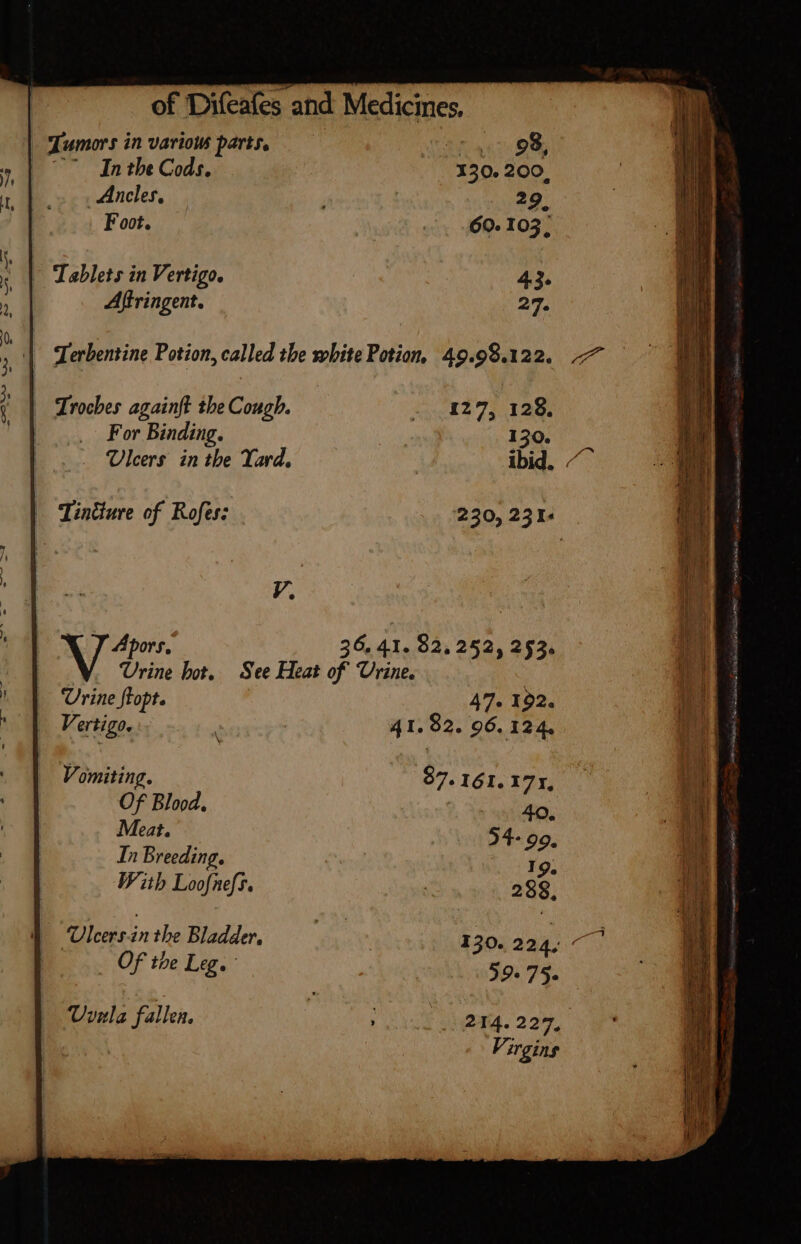 of Diſeaſes and Medicines.
Tumors in various parts. 98,
In the Cods. 130. 200,
Ancles. 29.
Foot. 60. 103,
Tablets in Vertigo. 43.
Aſtringent. 27.
Terbentine Potion, called the white Potion, 49.98.122.
Troches againſt the Cough. 127, 128.
For Binding. 130.
Ulcers in the Yard. ibid.
Tincture of Roſes: 230, 231.
V.
VApors. 36. 41. 82. 252, 253.
Urine hot. See Heat of Urine.
Urine ſtopt. 47. 192.
Vertigo. 41. 82. 96. 124.
Vomiting. 87. 161. 171.
Of Blood. 40.
Meat. 54. 99.
In Breeding. 19.
With Looſneſs. 288,
Ulcers in the Bladder. 130. 224.
Of the Leg. 59. 75.
Uvula fallen. 214. 227.
Virgins